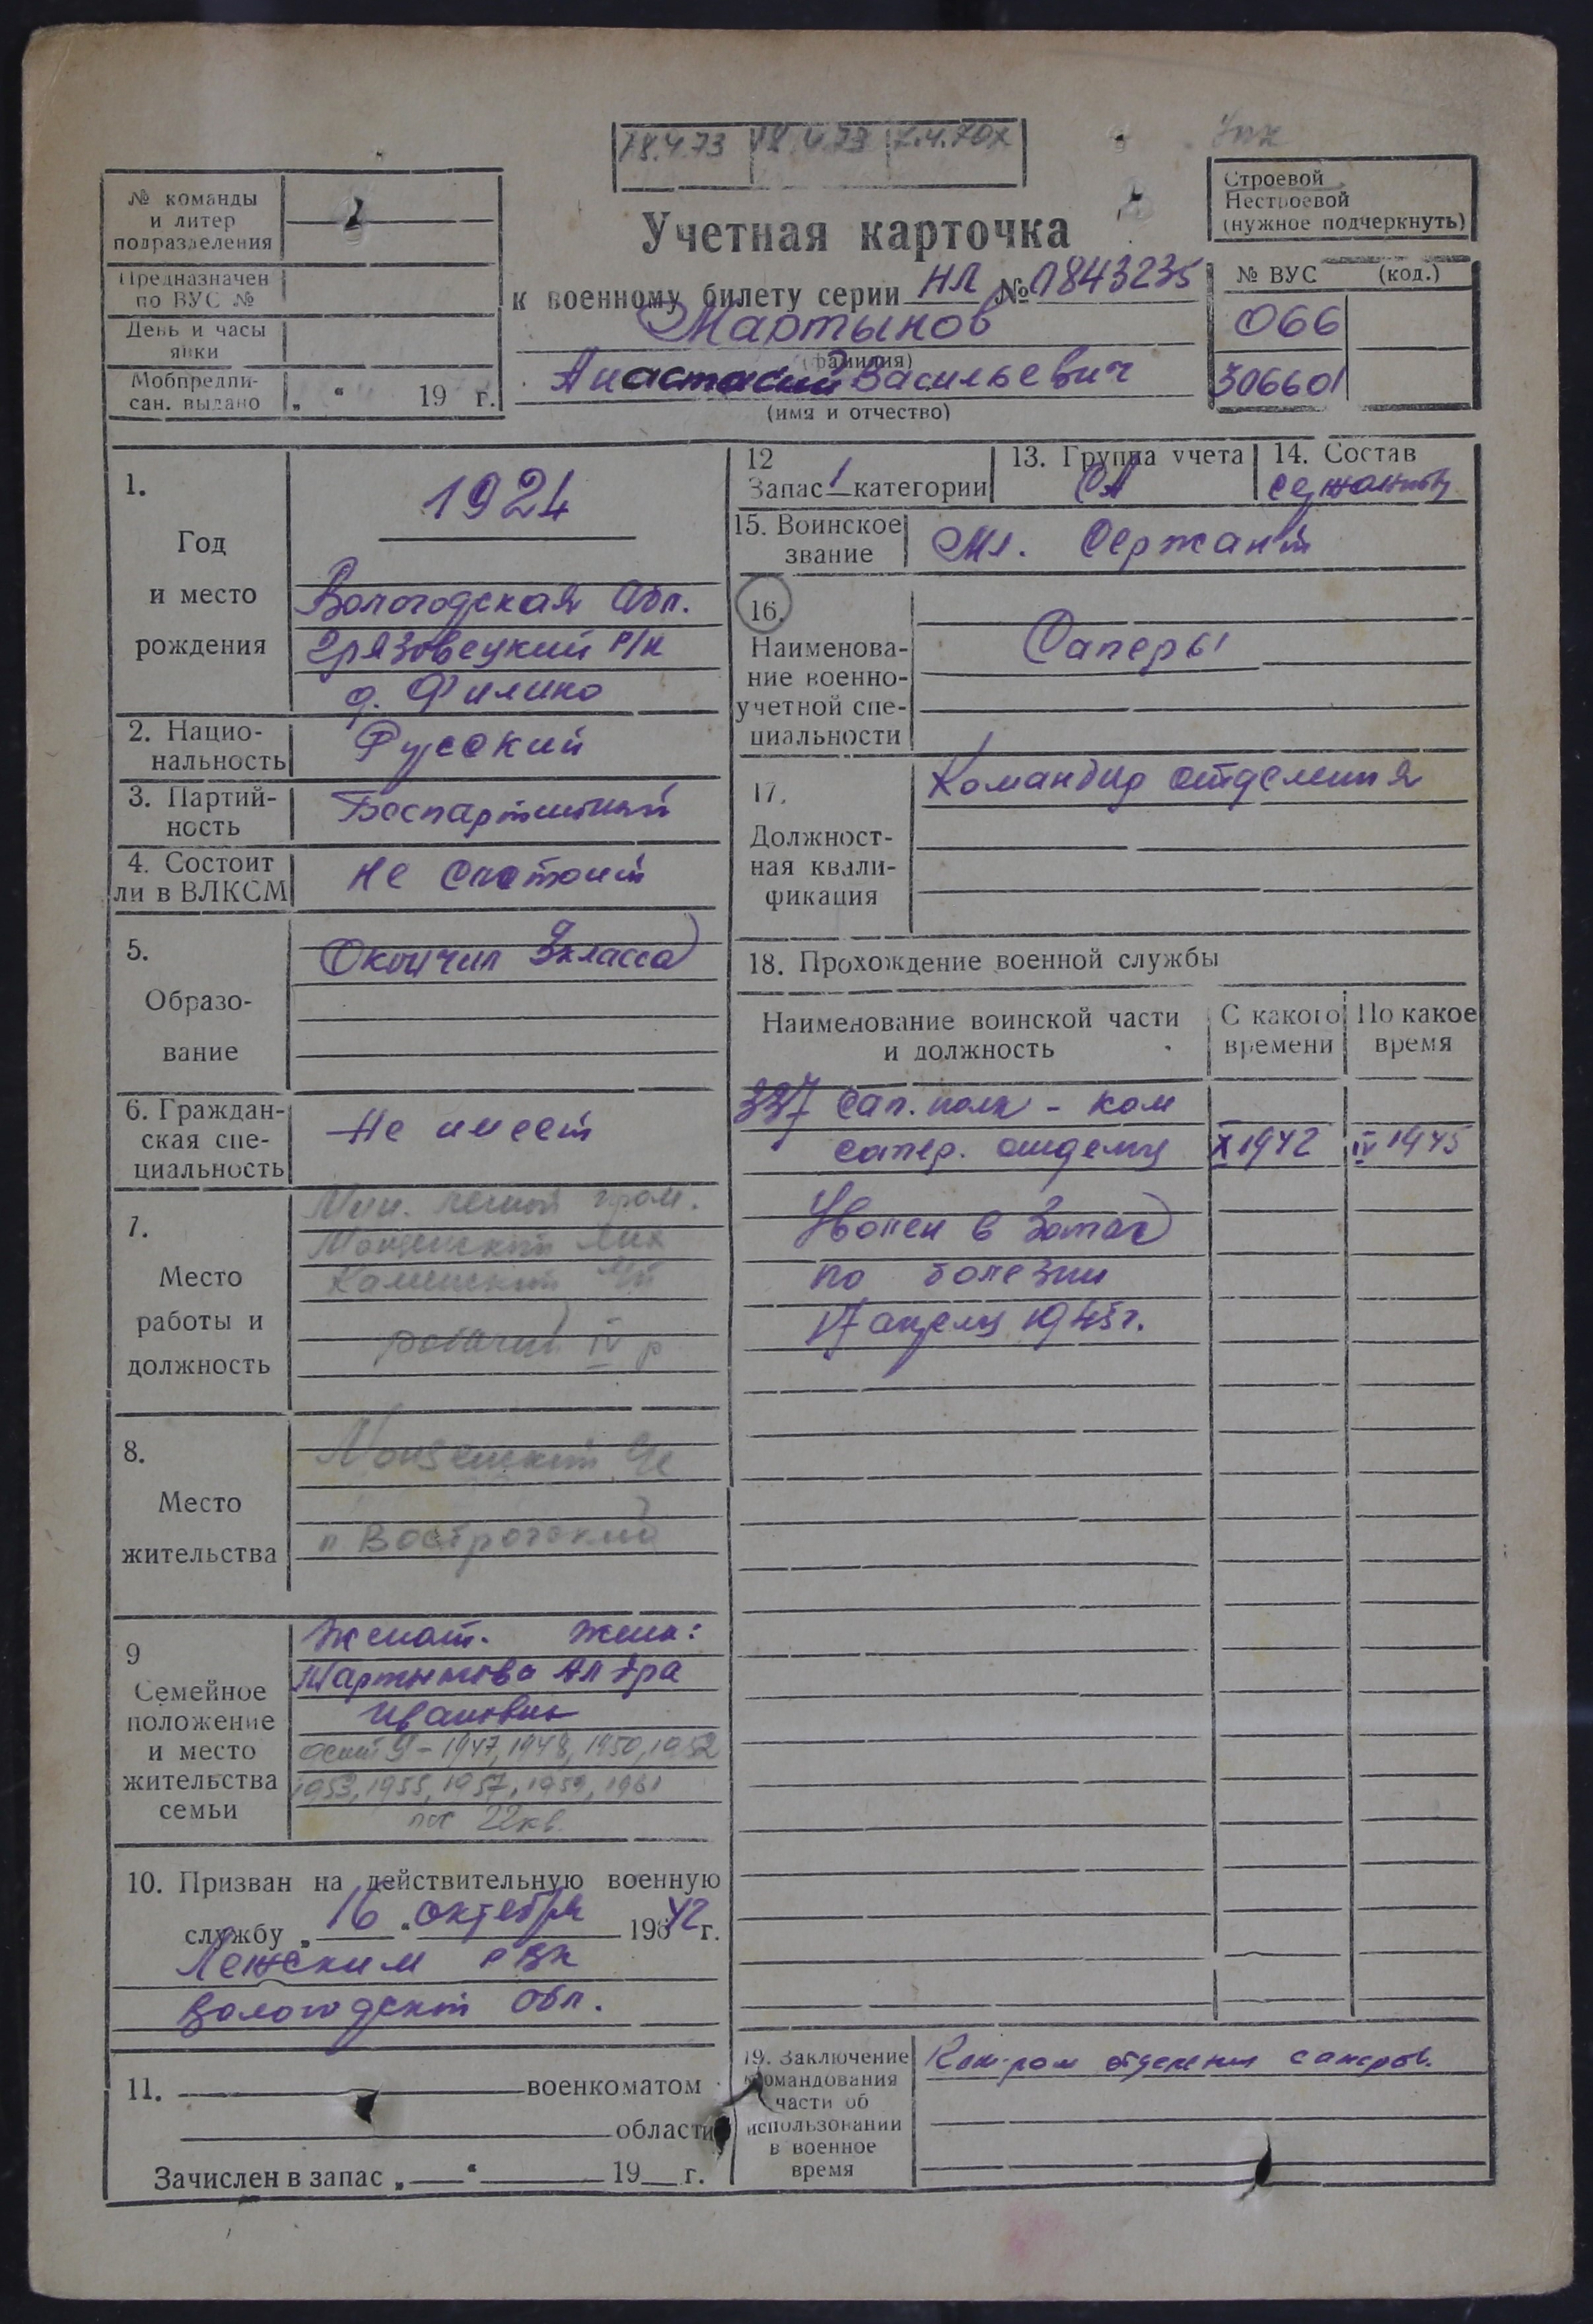 18.4.73 18.4.73
№ команды
и литер
подразделения
Предназначен
по ВУС №
День и часы
явки
Мобпредпи-
сан. выдано „ “ 19 г.
Строевой
Нестроевой
(нужное подчеркнуть)
Учетная карточка
к военному билету серии НЛ № 0843235
Мартынов
(фамилия)
Анастасий Васильевич
(имя и отчество)
№ ВУС (код.)
066
306601
1.
Год
и место
рождения
1924
Вологодская Обл.
Грязовецкий р/н
д. Филино
2. Нацио-
нальность
Русский
3. Партий-
ность
Беспартийный
4. Состоит
ли в ВЛКСМ
Не состоит
5.
Образо-
вание
Окончил 3 класса
6. Граждан-
ская спе-
циальность
Не имеет
7.
Место
работы и
должность
Мин. лесной пром.
Монзенский ЛПХ
Каменский
рабочий IV р
8.
Место
жительства
Монзенский
п Вострогский
9
Семейное
положение
и место
жительства
семьи
Женат. Жена:
Мартынова Ал-дра
Ивановна
детей 9 - 1947, 1948, 1950, 1952
1953, 1955, 1957, 1959, 1961
пос 22 кв.
10. Призван на действительную военную
службу „ 16 “ октября 19642 г.
Лежским РВК
Вологодской обл.
11. военкоматом
области
Зачислен в запас „ “ 19 г.
12
Запас 1 категории
13. Группа учета
СА
14. Состав
сержантов
15. Воинское
звание
Мл. Сержант
16.
Наименова-
ние военно-
учетной спе-
циальности
Саперы
17.
Должност-
ная квали-
фикация
Командир отделения
18. Прохождение военной службы
Наименование воинской части
и должность
С какого
времени
По какое
время
337 сап. полк - ком
сапер. отделен X 1942 IV 1945
Уволен в Запас
по болезни
17 апреля 1945 г.
19. Заключение
командования
части об
использовании
в военное
время
Ком-ром отделения саперов.